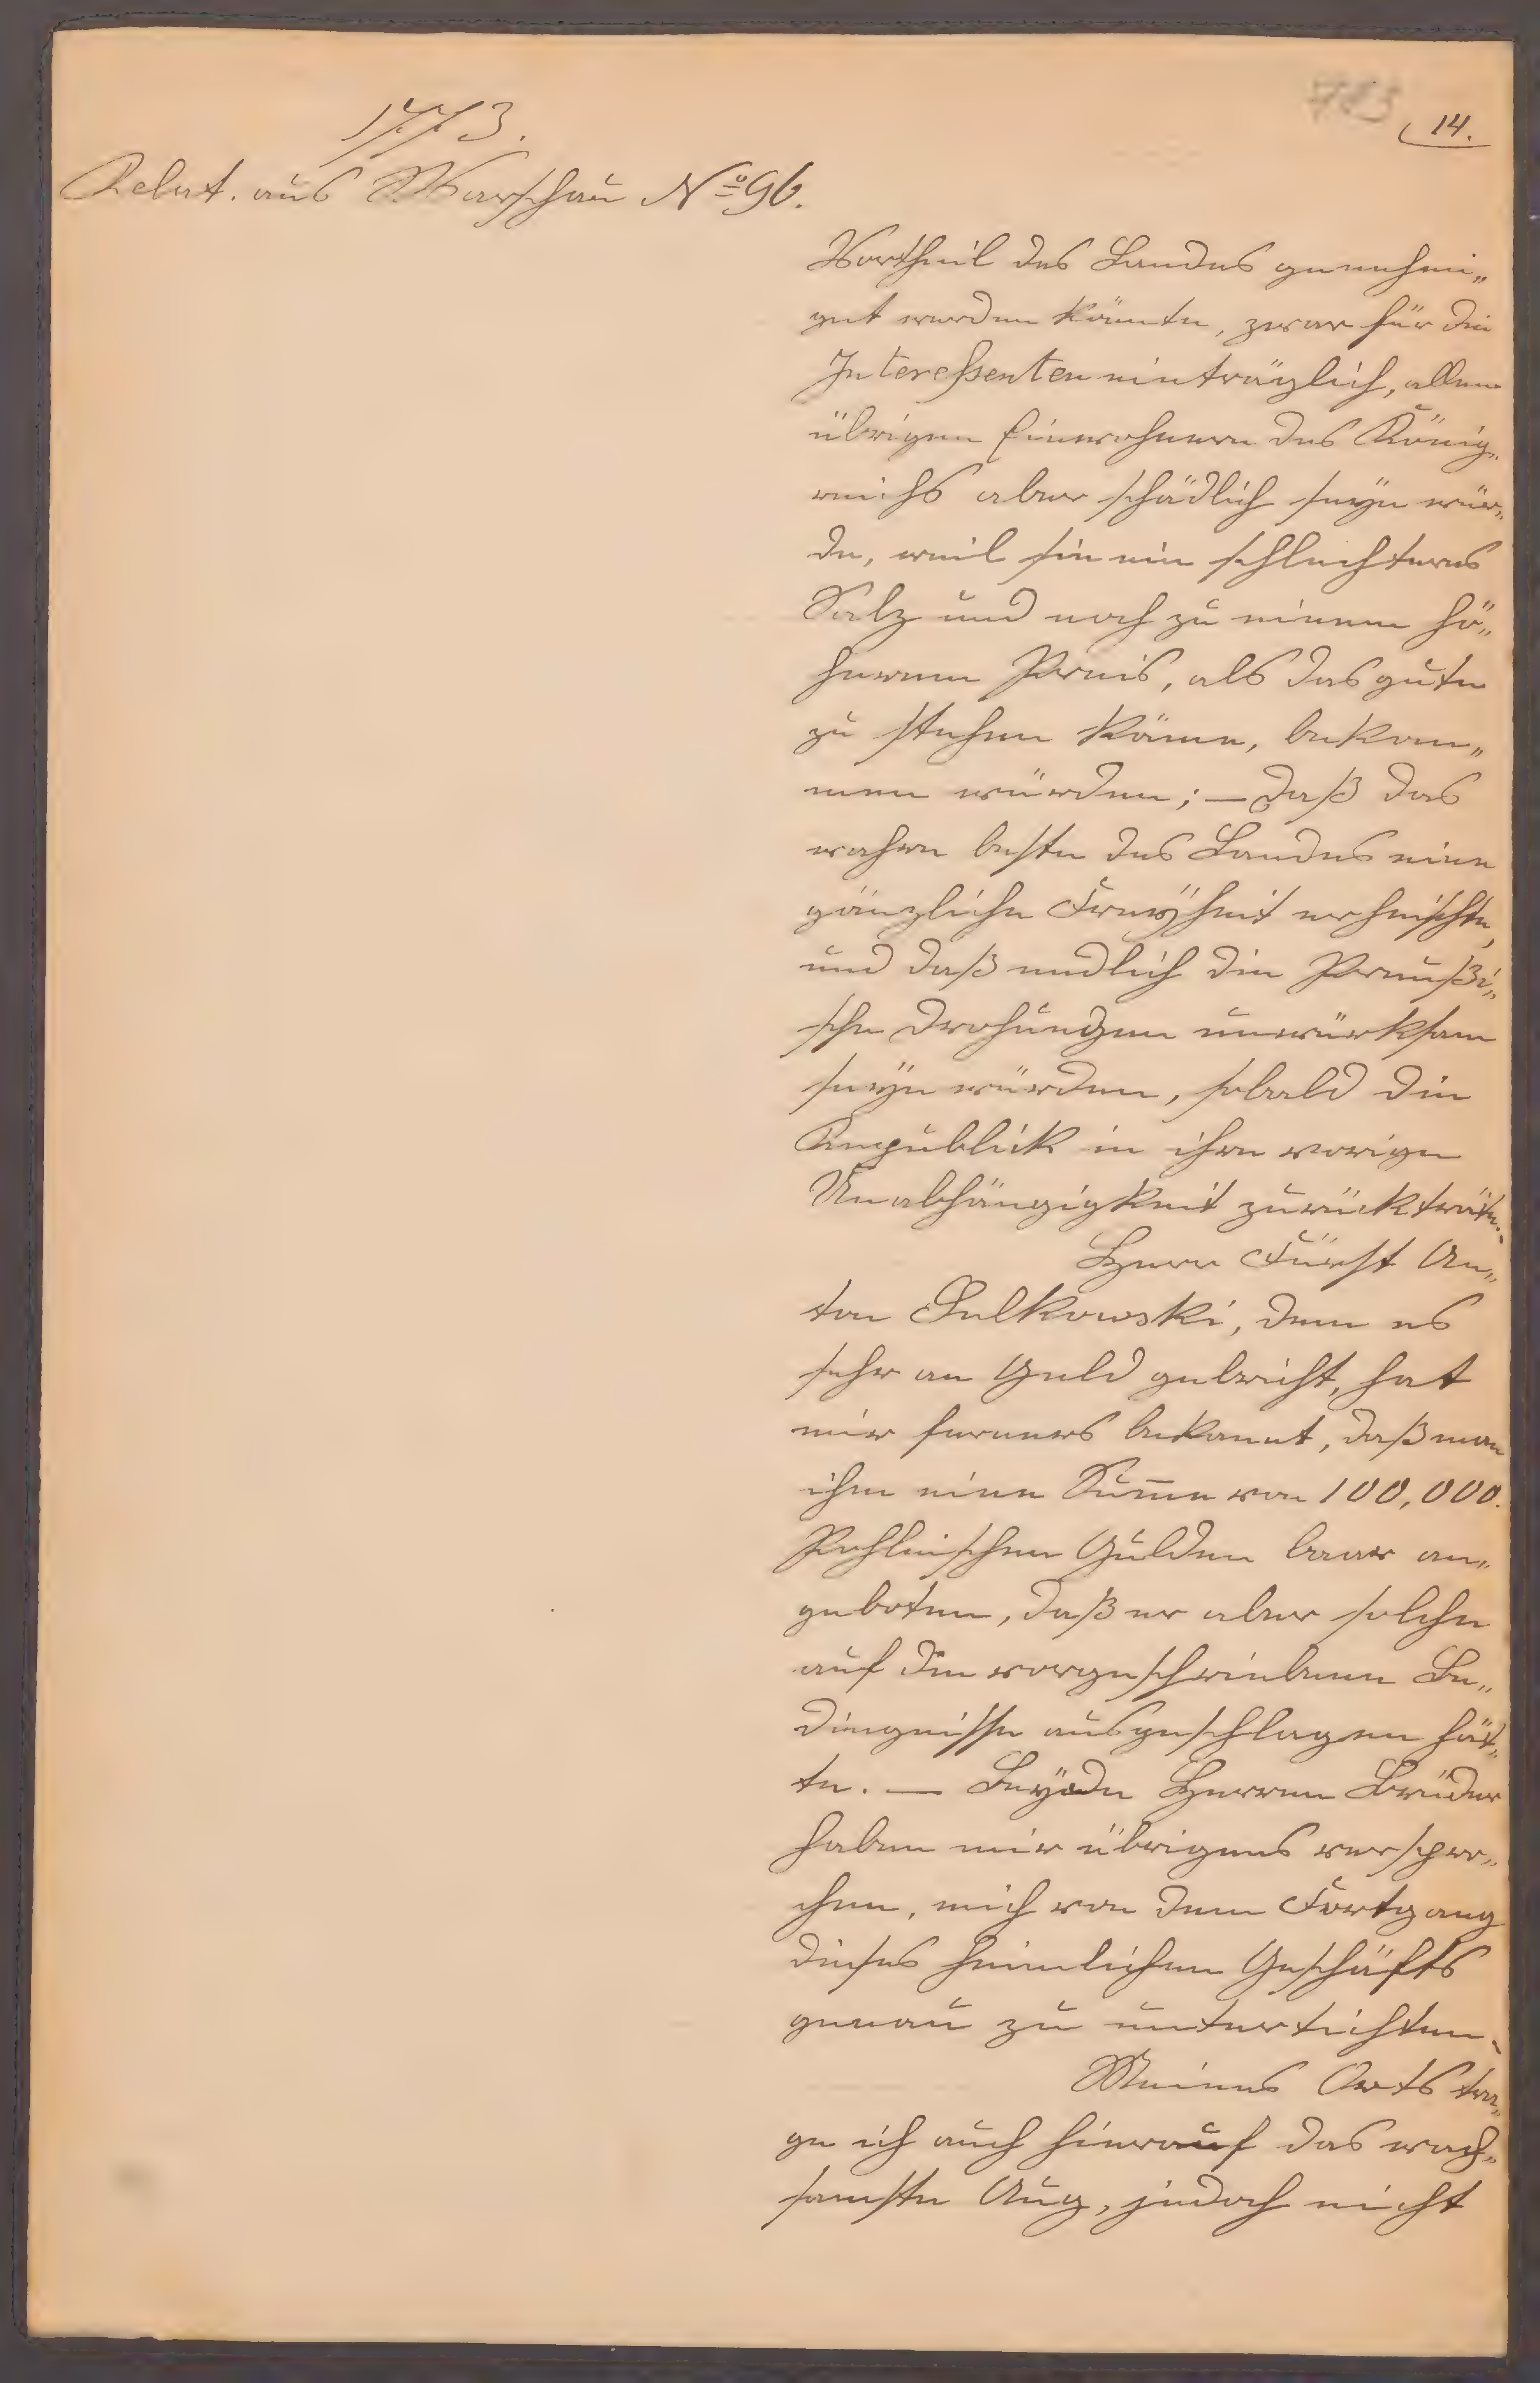 1773.
14.
Relat. aus Warschau Nº 96.
Vortheil des Landes genehmi„
get werden könnte, zwar für die
Interessenten einträglich, allen
übrigen Einwohnern des König„
reichs aber schädlich seÿn wür„
de, weil sie ein schlechteres
Salz und noch zu einem hö„
heren Preis, als das gute
zu stehen käme, bekom„
men würden; — daß das
wahre beste des Landes eine
gänzliche Freÿheit erheischte,
und daß endlich die Preußi„
sche Drohungen unwürksam
seÿn würden, sobald die
Republick in ihre vorige
Unabhängigkeit zurückträte.
Herr Fürst An„
ton Sulkowski, dem es
sehr an Geld gebricht, hat
mir ferners bekannt, daß man
ihm eine Sum̄e von 100,000.
Pohlnischen Gulden baar an„
geboten, daß er aber solche
auf die vorgeschriebene Be„
dingnisse ausgeschlagen hät„
te. — Beÿde Herren Brüder
haben mir übrigens verspro„
chen, mich von dem Fortgang
dieses heimlichen Geschäfts
genau zu unterrichten.
Meines Orts tra„
ge ich auch hierauf das wach„
samste Aug, jedoch nicht